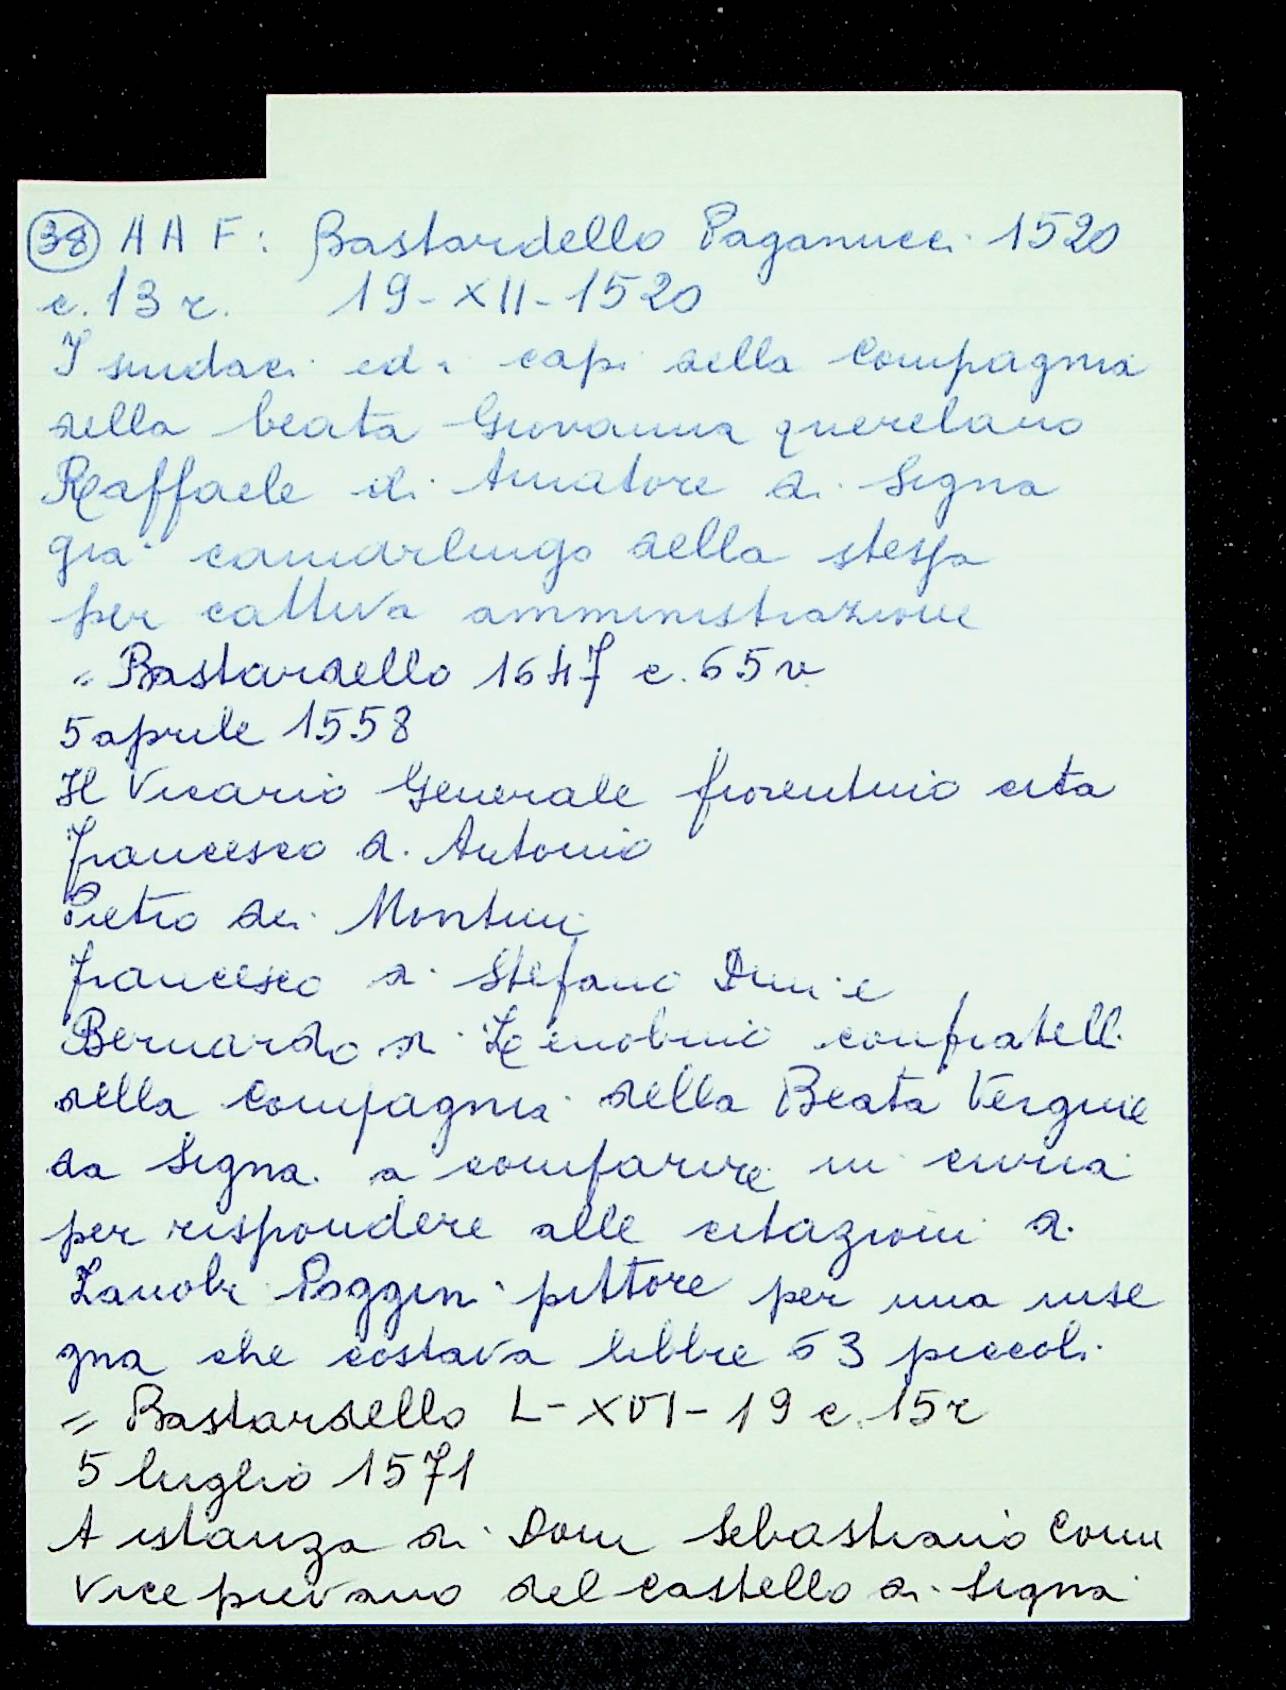 38 A A F: Bastardello Paganucci 1520
c. 13 r. 19-XII-1520
I sindaci ed i capi della Compagnia
della beata Giovanna querelano
Raffaele di Amatore di Signa
già camarlingo della stessa
per cattiva amministrazione
= Bastardello 1647 c. 65 v
5 aprile 1558
Il Vicario Generale fiorentino cita
Francesco di Antonio
Pietro dei Montini
Francesco di Stefano Dini e
Bernardo di Zenobino confratelli
della Compagnia della Beata Vergine
da Signa. a comparire in curia
per rispondere alle citazioni di
Zanobi Poggini pittore per una inse
gna che costava libbre 63 piccoli.
= Bastardello L-XVI-19 c. 15 r
5 luglio 1571
A istanza di Dom Sebastiano
Vice pievano del castello di Signa